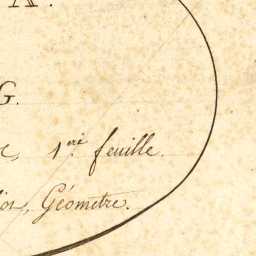 K.
G.
1.re feuille.
Géomètre.